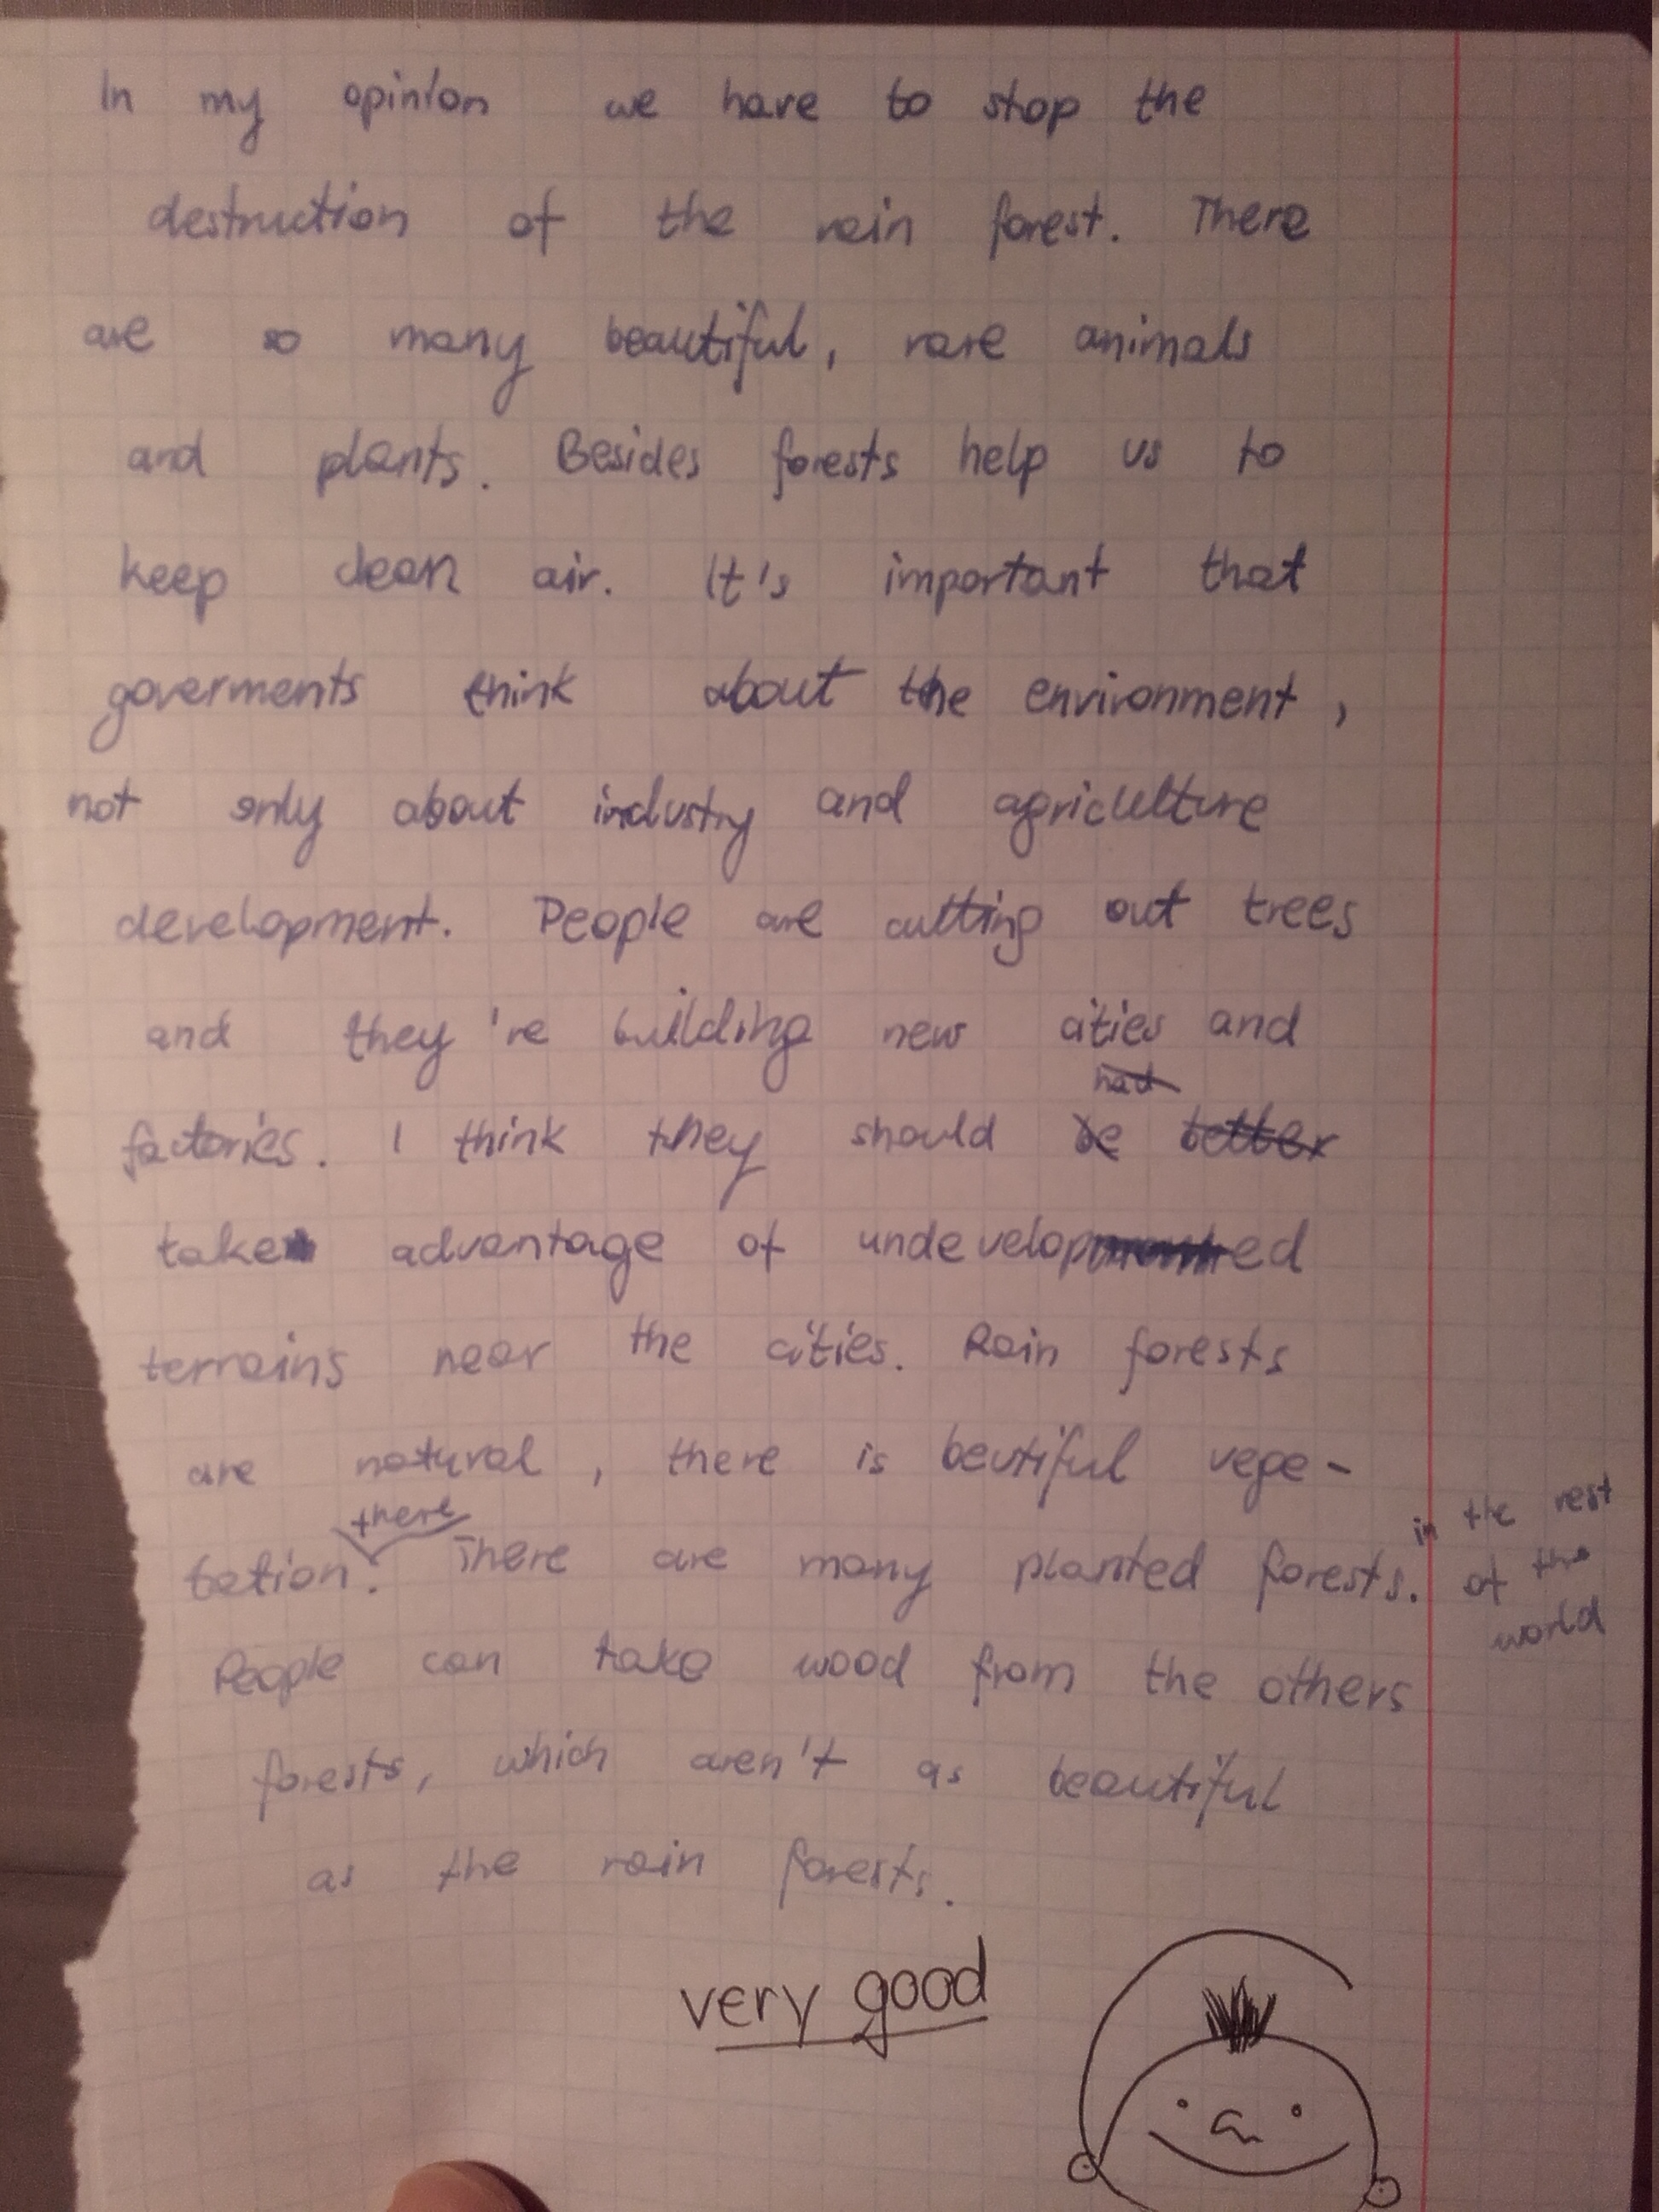 In my opinion we have to stop the
destruction of the rain forest. There
are so many beautiful, rare animals
and plants. Besides forests help us to
keep clean air. It's important that
goverments think about the environment,
not only about industry and agriculture
development. People are cutting out trees
and they're building new cities and
had
factories. I think they should be better
take advantage of undeveloped
terrains near the cities. Rain forests
are natural, there is beutiful vege-
there
tation. There are many planted forests. in the rest
of the
world
People can take wood from the others
forests, which aren't as beautiful
as the rain forests.
very good